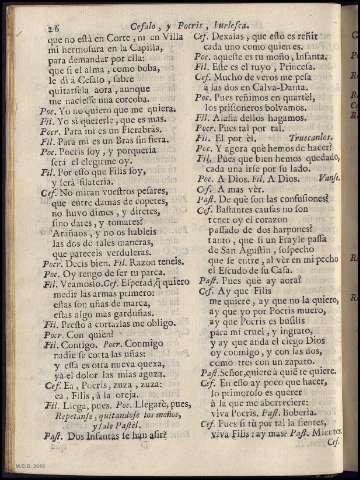 26 Cefalo, y Pocris, burlesca.
que no está en Corte, ni en Villa
mi hermosura en la Capilla,
para demandar por ella:
que si el alma, como boba,
le dí à Cefalo, sabre
quitarsela aora, aunque
me naciesse una corcoba.
Poc. Yo no quiero que me quiera.
Fil. Yo sì quererle, que es mas.
Poc. Para mi es un Fierabras.
Fil. Para mi es un Bras sin fiera.
Poc. Pocris soy, y porquería
serà el elegirme oy.
Fil. Por esso que Filis soy,
y serà filatería.
Cef. No miran vuestros pesares,
que entre damas de copetes,
no huvo dimes, y diretes,
sino dares, y tomares?
Arañaos, y no os hableis
las dos de tales maneras,
que pareceis verduleras.
Poc. Decis bien. Fil. Razon teneis.
Poc. Oy tengo de ser tu parca.
Fil. Veamoslo. Cef. Esperad, q̃ quiero
medir las armas primero:
estas son uñas de marca,
estas algo mas garduñas.
Fil. Presto à cortarlas me obligo.
Poc. Con quien?
Fil. Contigo. Pocr. Conmigo
nadie se corta las uñas:
y essa es otra nueva queza,
ya el dolor las mias agoza.
Cef. Ea, Pocris, zuza, zuza:
ea, Filis, à la oreja.
Fil. Llega, pues. Poc. Llegarè, pues,
Repelanse, quitandose los moños,
y sale Pastèl.
Past. Dos Infantas se han asir?
Cef. Dexalas, que esto es reñir
cada uno como quien es.
Poc. aqueste es tu moño, Infanta.
Fil. Este es el tuyo, Princesa.
Cef. Mucho de veros me pesa
à las dos en Calva-Danta.
Poc. Pues reñimos en quartèl,
los prisioneros bolvamos.
Fil. Assi dellos hagamos.
Pocr. Pues tal por tal.
Fil. El por èl. Truecanlos.
Poc. Y agora què hemos de hacer?
Fil. Pues que bien hemos quedado,
cada una irse por su lado.
Poc. A Dios. Fil. A Dios. Vanse.
Cef. A mas vèr.
Past. De què son las confusiones?
Cef. Bastantes causas no son
tener oy el corazon
passado de dos harpones?
tanto, que si un Frayle passa
de San Agustin, sospecho
que le entre, al vèr en mi pecho
el Escudo de su Casa.
Past. Pues què ay aora?
Cef. Ay que Filis
me quiere, ay que no la quiero,
ay que yo por Pocris muero,
ay que Pocris es busilis
para mì cruel, y ingrato,
y ay que anda el ciego Dios
oy conmigo, y con las dos,
como tres con un zapato.
Past. Señor, quiere à quiè te quiere.
Cef. En esso ay poco que hacer,
lo primoroso es querer
à la que me aborreciere:
viva Pocris. Past. Bobería.
Cef. Pues si tù por tal la sientes,
viva Filis: ay mas? Past. Mientes.
Cef.